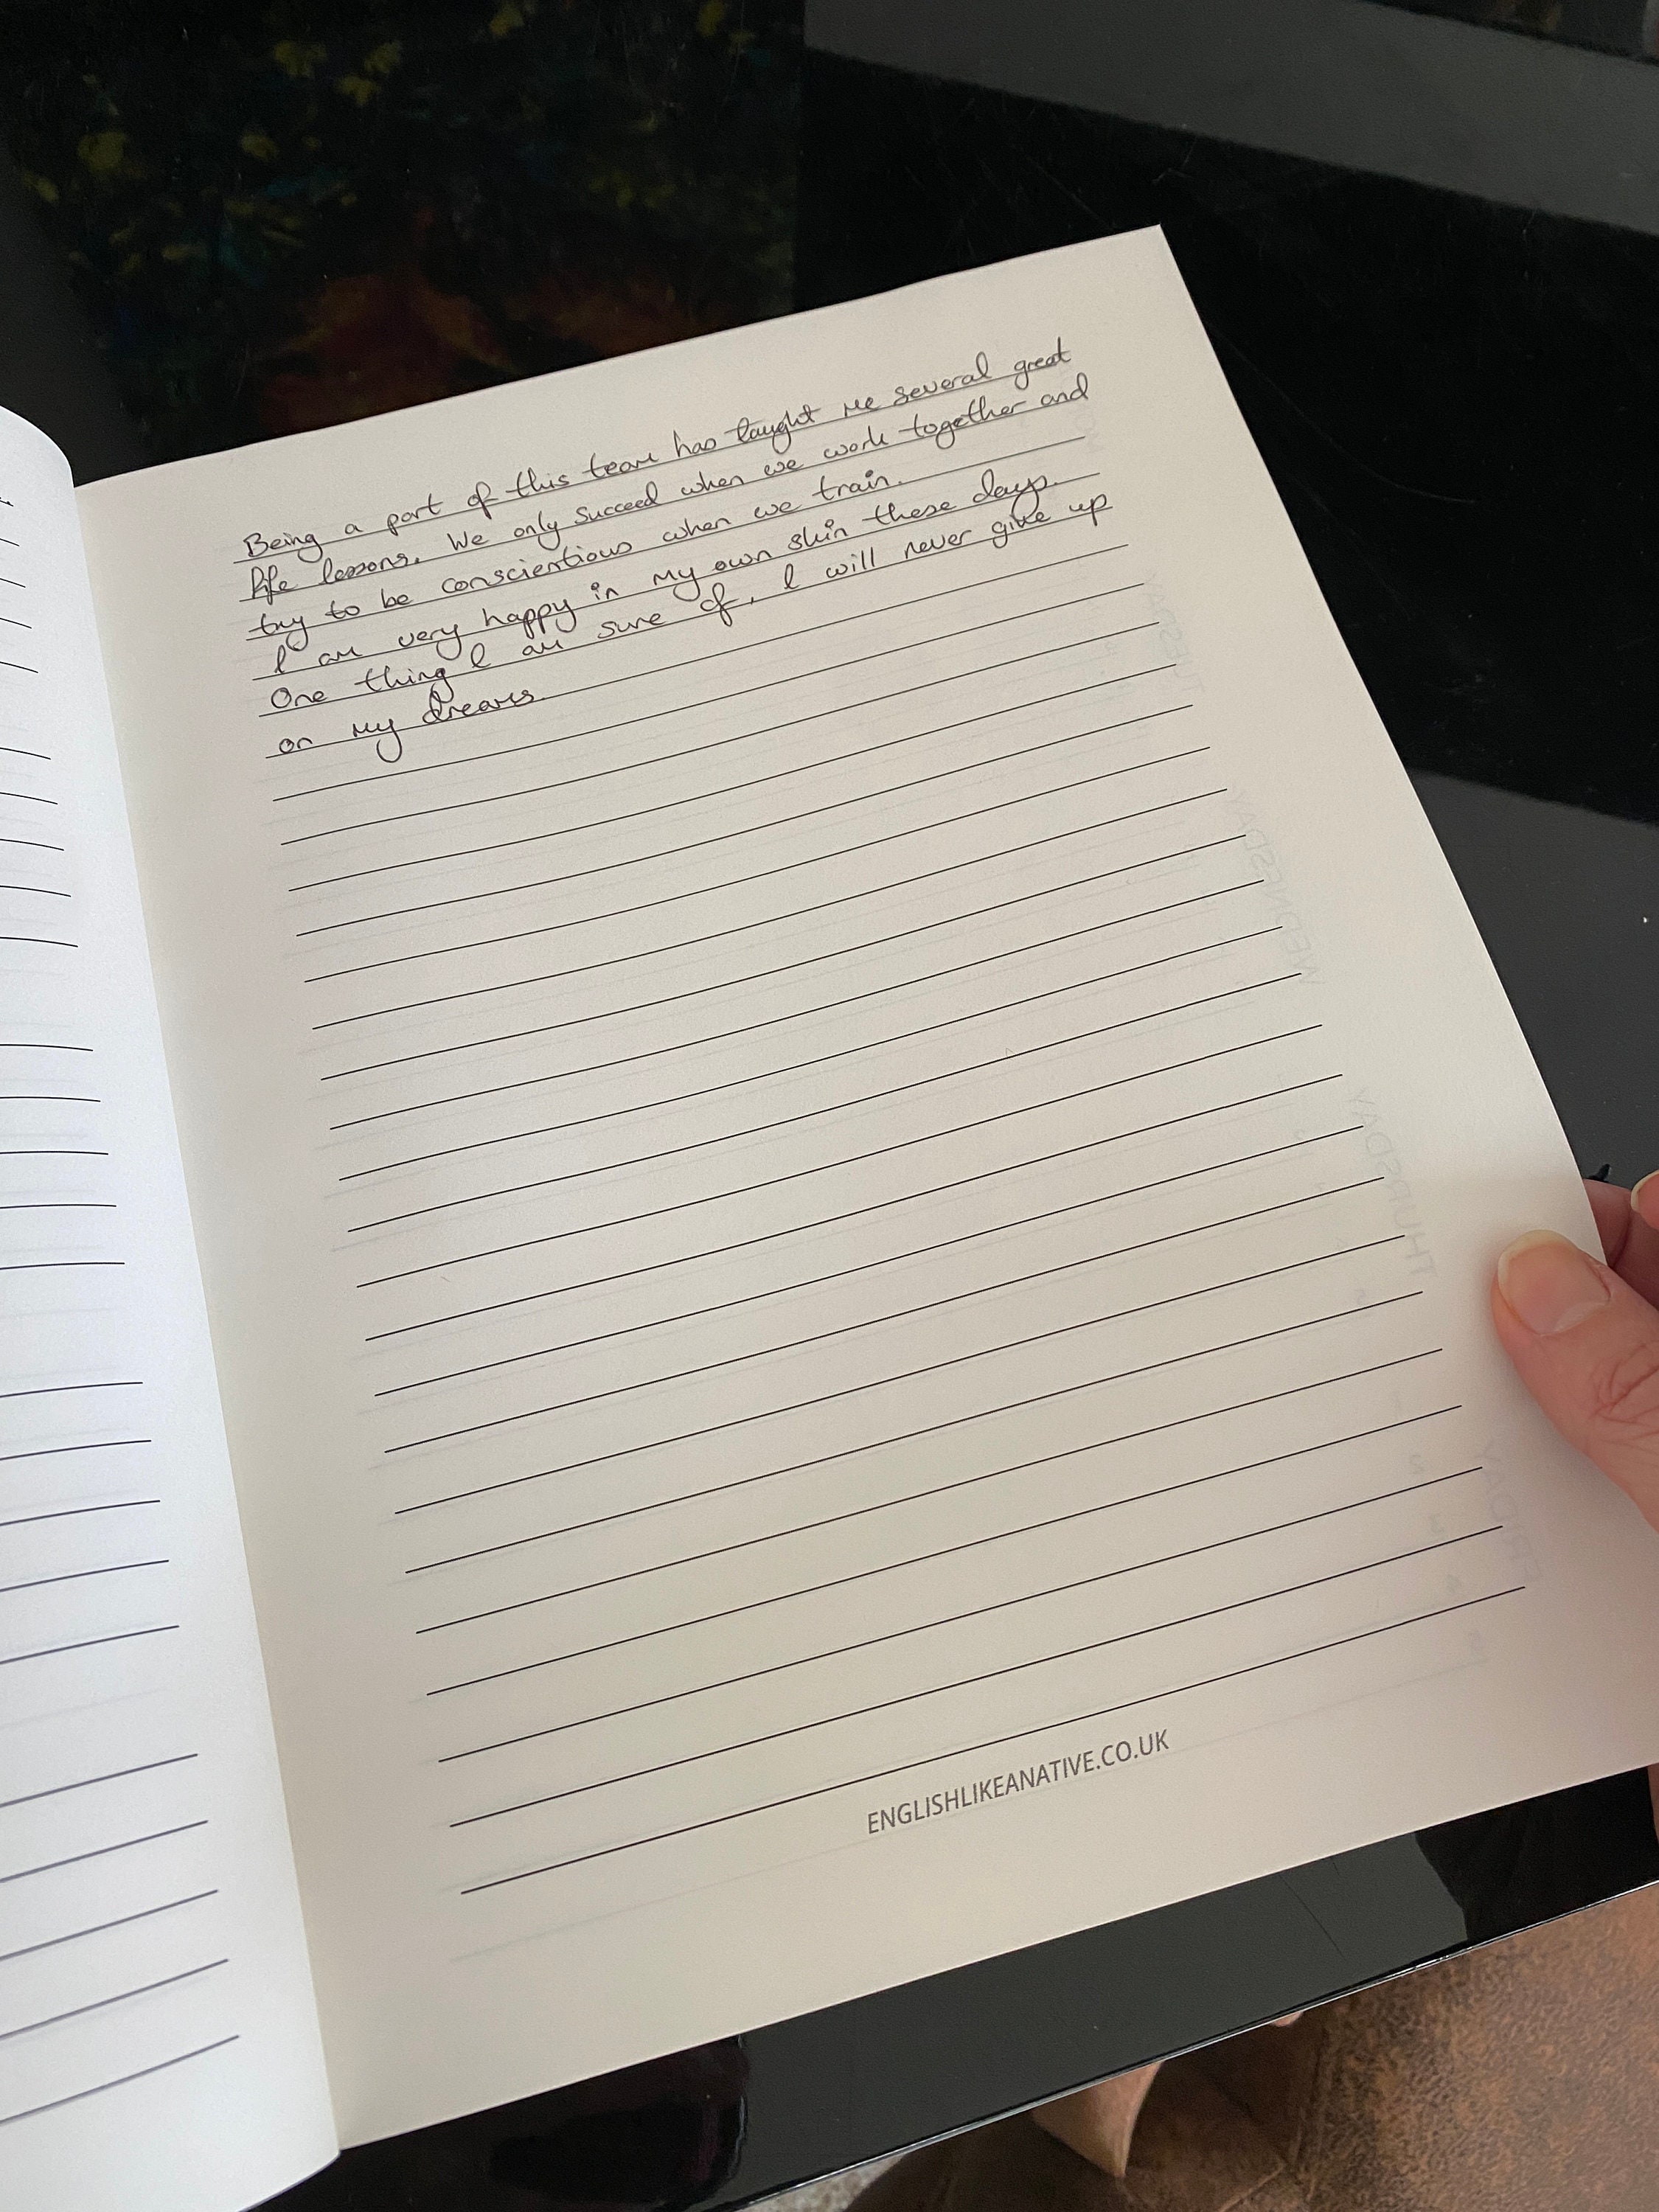 Being a part of this team has taught me several great
life lessons. We only succeed when we work together and
try to be conscientious when we train.
I am very happy in my own skin these days.
One thing I am sure of, I will never give up
on my dreams.
TUESDAY
WEDNESDAY
THURSDAY
FRIDAY
ENGLISHLIKEANATIVE.CO.UK